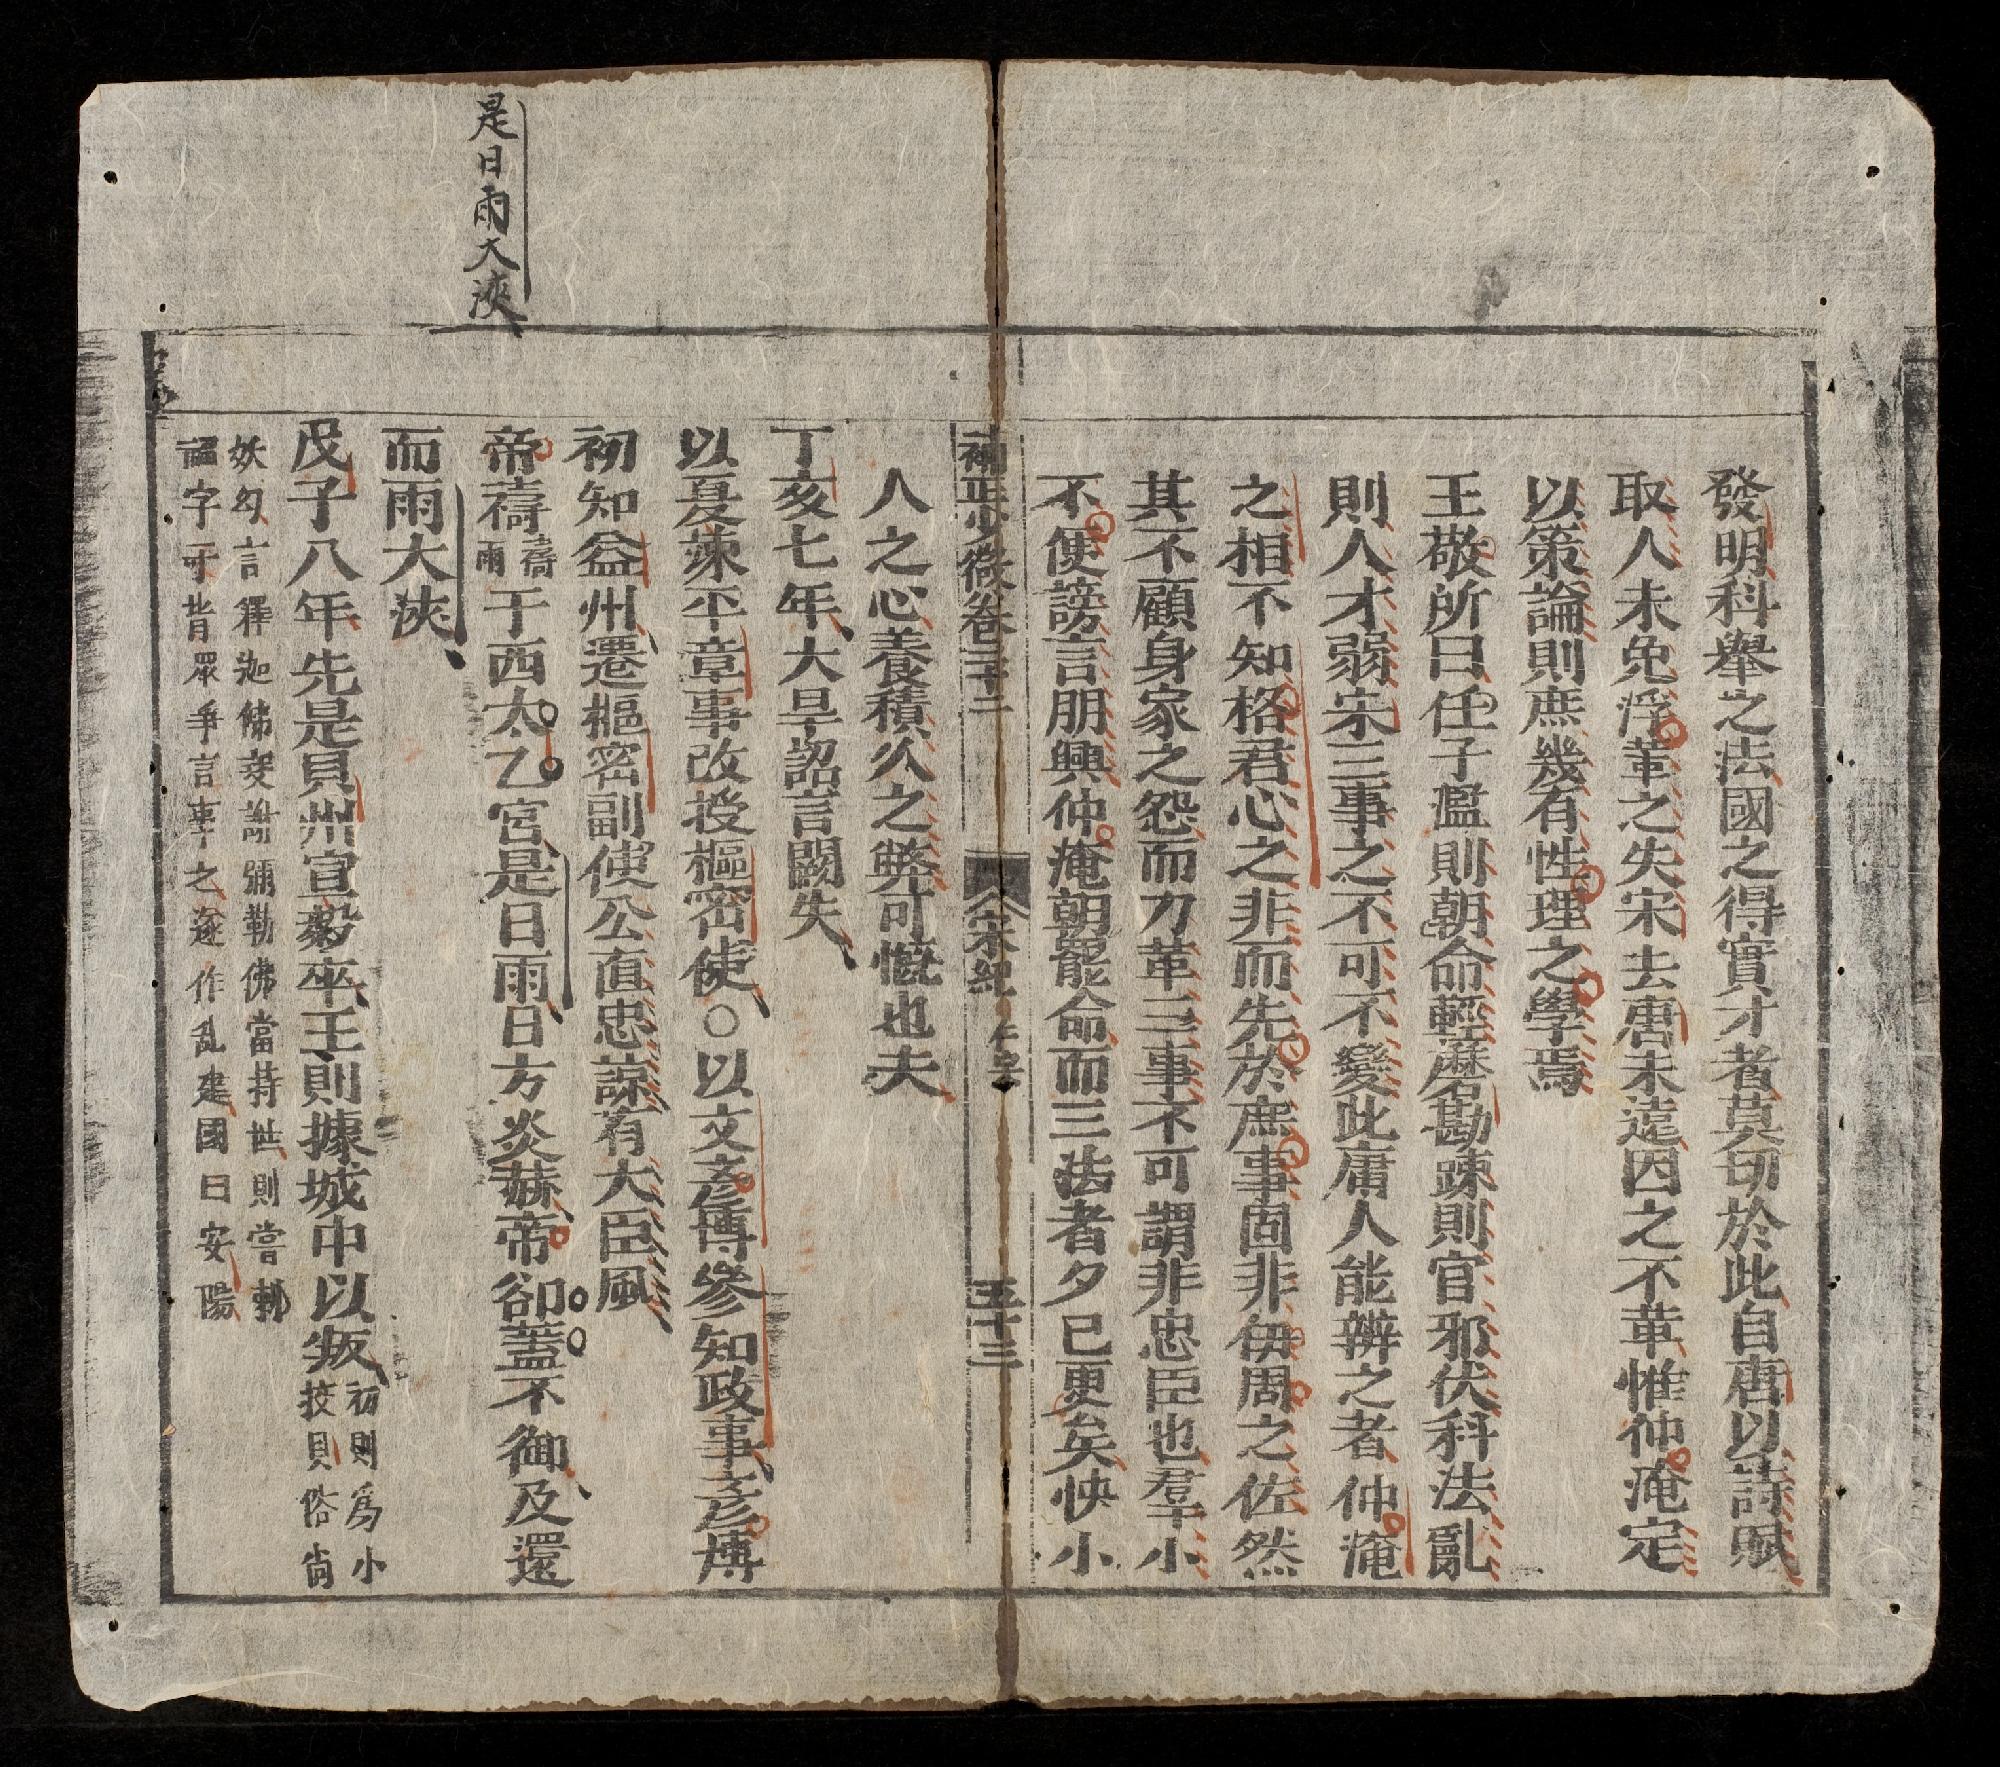 發明科舉之法國之得實才者莫切於此自唐以詩賦
取人未免浮華之失宋去唐未遠因之不革惟仲淹定
以策論則庶幾有性理之學焉
王敬所曰任子濫則朝命輕磨勘踈則官邪伏科法亂
則人才弱宋三事之不可不變此庸人能辨之者仲淹
之相不知格君心之非而先於庶事固非伊周之佐然
其不顧身家之怨而力革三事不可謂非忠臣也羣小
不便謗言朋興仲淹朝罷命而三法者夕已更矣快小
補正少微卷二十二 宋紀 仁宗 五十三
人之心養積久之弊可慨也夫
丁亥七年大旱詔言闕失
以夏竦平章事改授樞密使○以文彥博參知政事彥博
初知益州遷樞密副使公直忠諒有大臣風
帝禱禱雨于西太乙宮是日雨日方炎赫帝卻蓋不御及還
而雨大浹
戊子八年先是貝州宣毅卒王則據城中以叛初則為小
技貝俗尚
妖幻言釋迦佛衰謝彌勒佛當持世則嘗刺
福字於背眾爭言事之遂作乱建國曰安陽
是日雨大浹